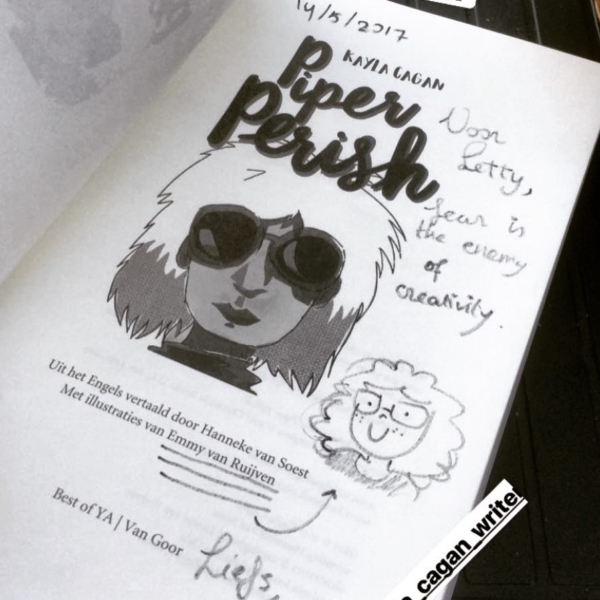 14/5/2017
KAYLA CAGAN
Piper
Perish
Voor
Letty,
fear is
the enemy
of
creativity.
Uit het Engels vertaald door Hanneke van Soest
Met illustraties van Emmy van Ruijven
Best of YA | Van Goor
Liefs,
cagan_writer